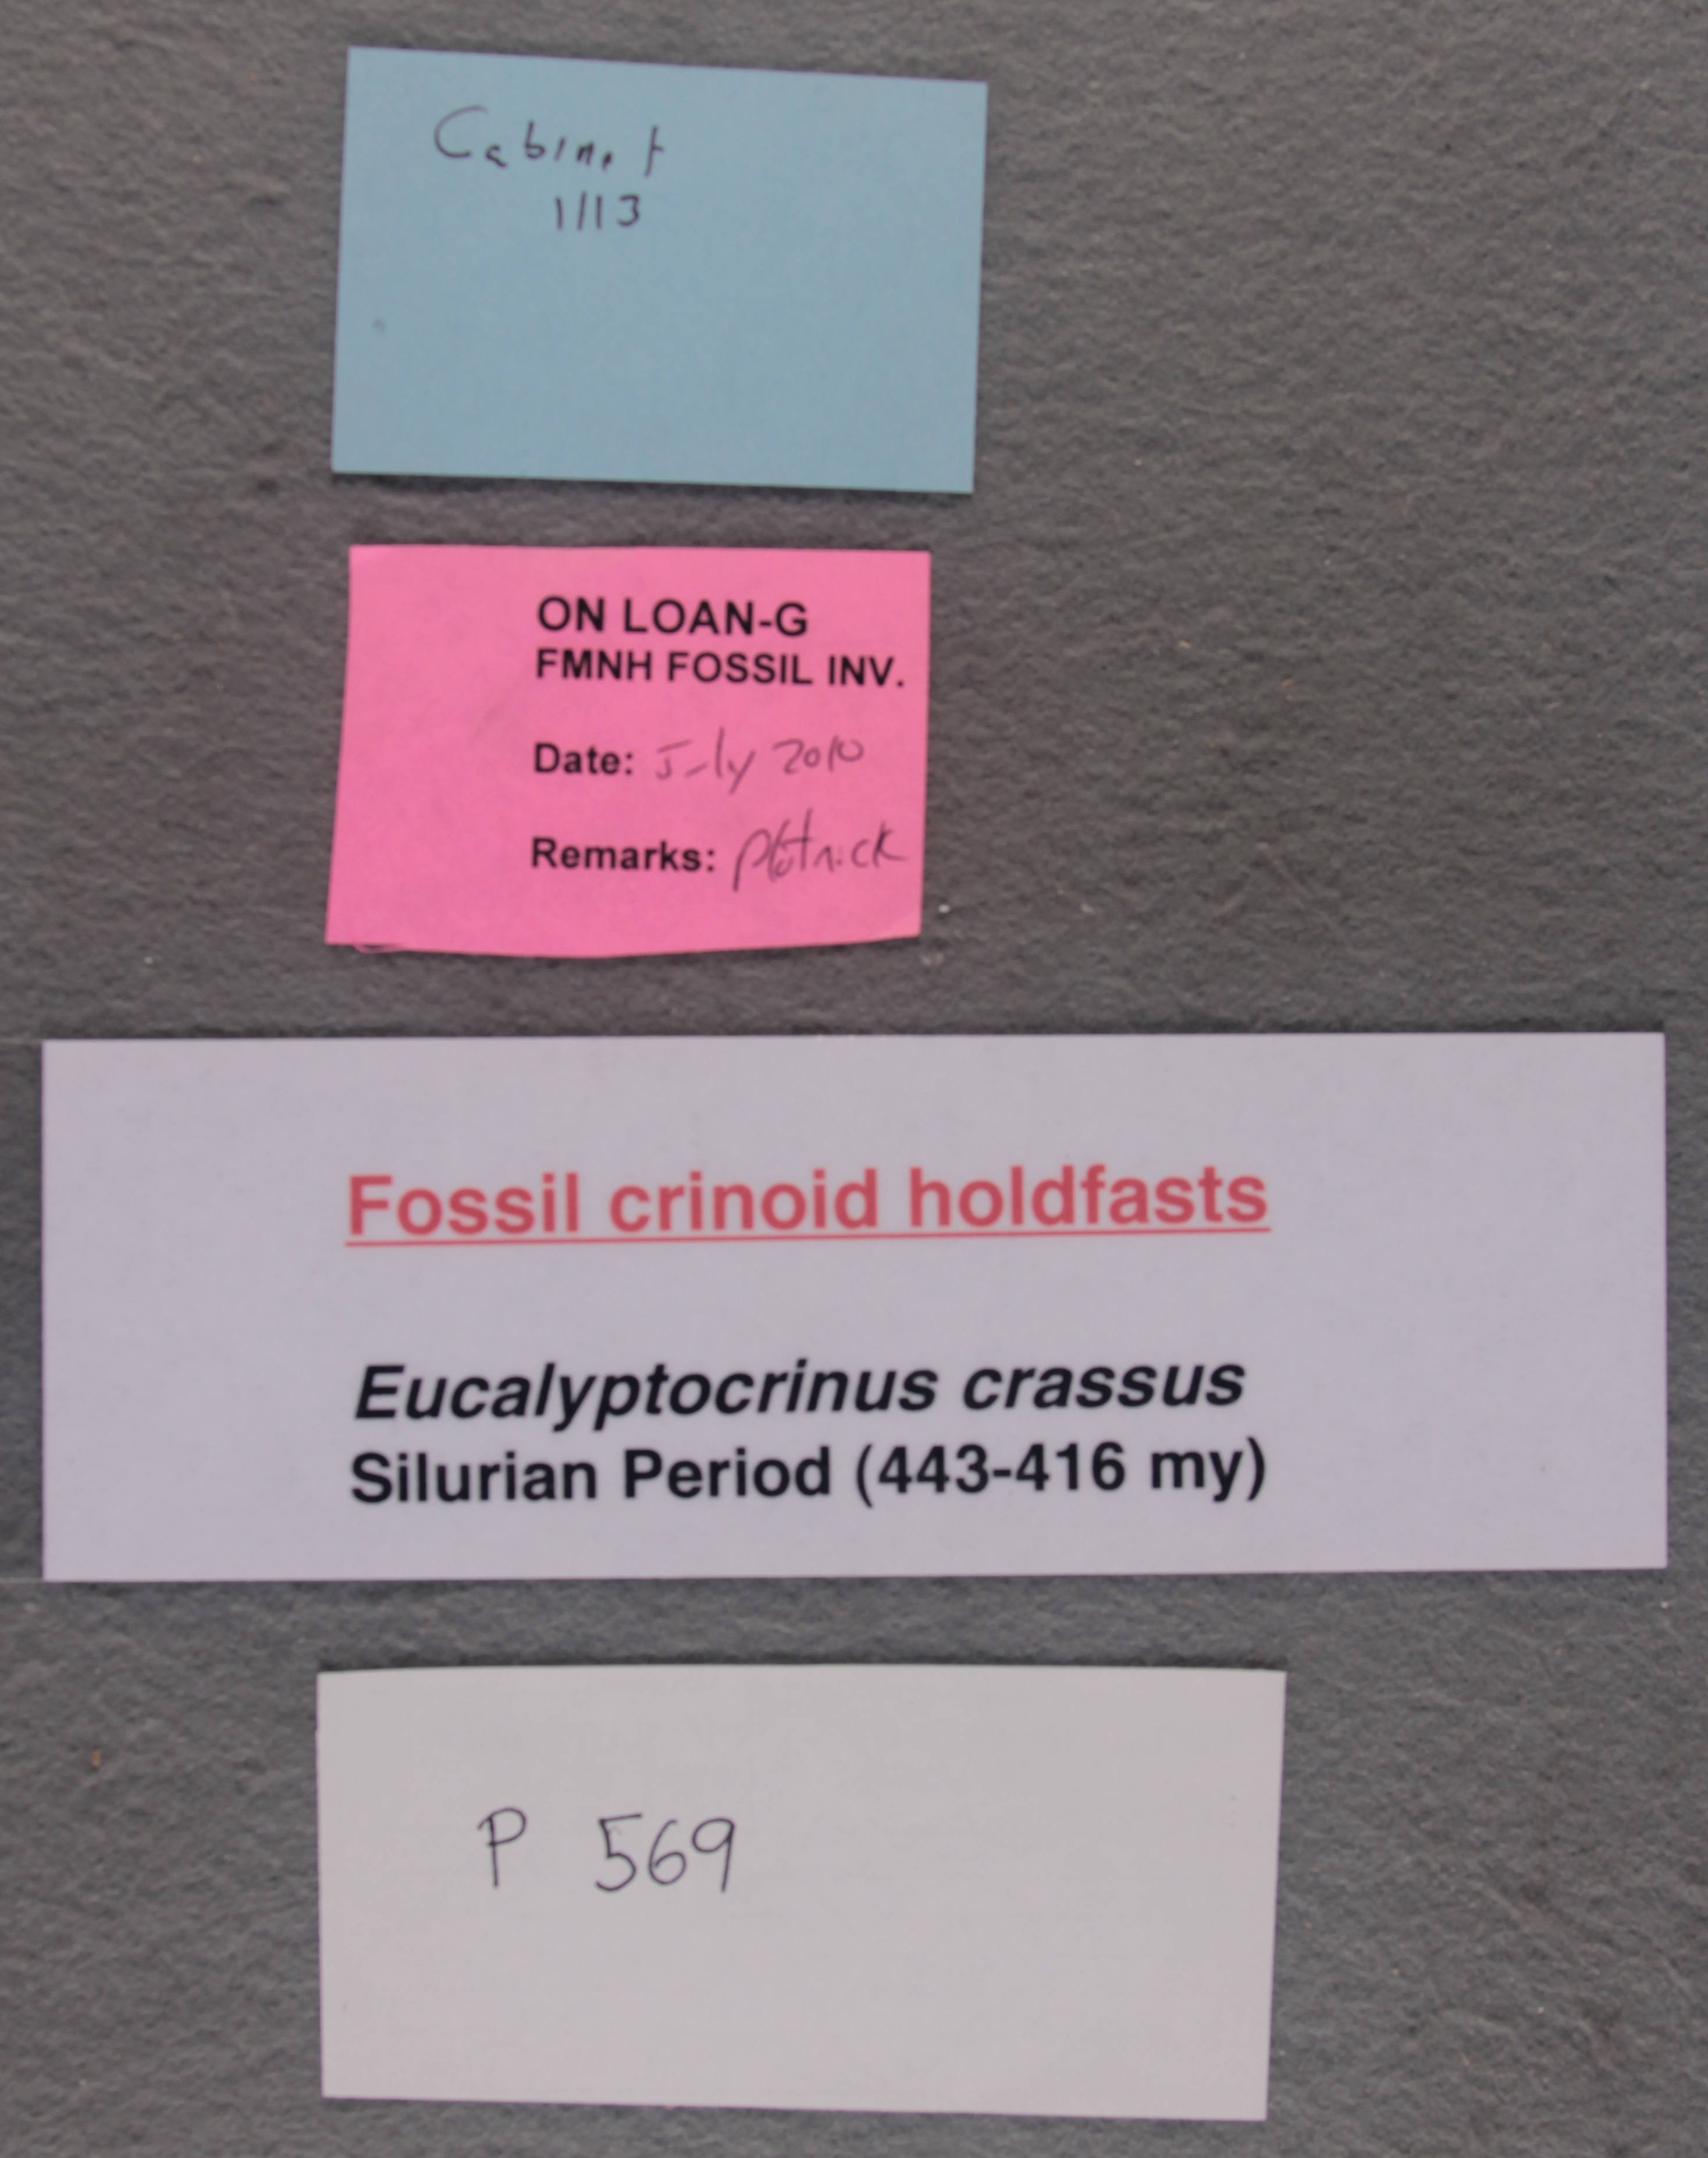 Cabinet
1/13
ON LOAN-G
FMNH FOSSIL INV.
Date: July 2010
Remarks: Plotnick
Fossil crinoid holdfasts
Eucalyptocrinus crassus
Silurian Period (443-416 my)
P 569